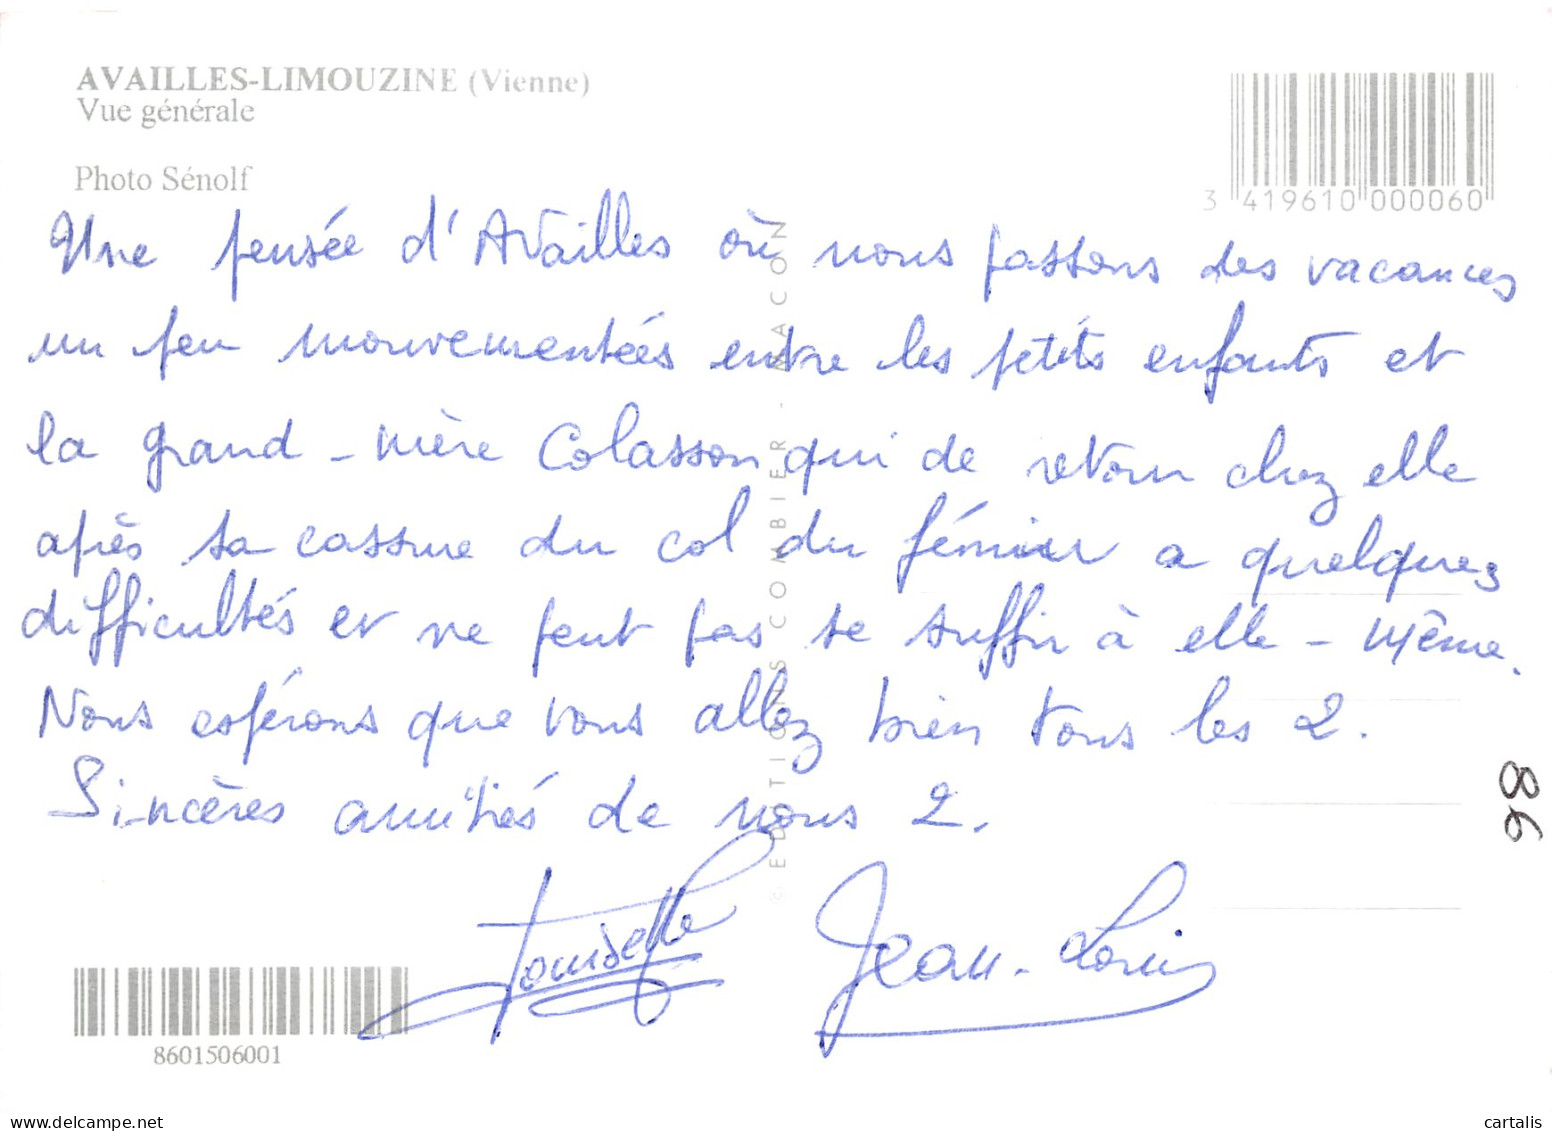 AVAILLES-LIMOUZINE (Vienne)
Vue générale
Photo Sénolf
3 419610 000060
Une pensée d'Availles où nous passons des vacances
un peu mouvementées entre les petits enfants et
la grand-mère Colasson qui de retour chez elle
après sa cassure du col du fémur a quelques
difficultés et ne peut pas se suffir à elle-même.
Nous espérons que vous allez bien tous les 2.
Sincères amitiés de nous 2.
Jean-Louis
© EDITIONS COMBIER MACON
86
8601506001
www.delcampe.net
cartalis